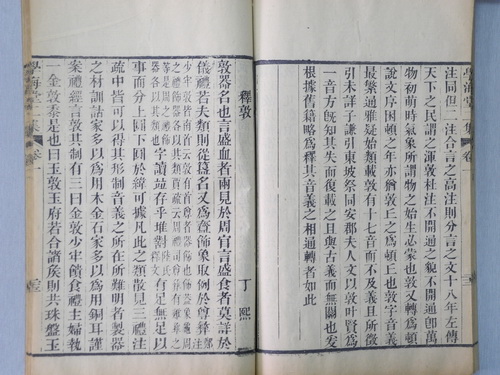 學海堂二集 卷一
注同但二注合言之高注則分言之文十八年左傳
天下之民謂之渾敦杜注不開通之貌不開通卽萬
物初萌時氣象所謂物之始生必蒙也敦又轉爲頓
說文序困頓之年亦猶敦之爲頓正也敦字音義
最繁通雅疑始類載敦有十七音而不及義且所徵
引未詳子謙引東坡祭同安郡夫人文以敦叶賢爲
一音方旣知其失而復載之且與古義而無關也爰
根據舊籍略爲釋其音義之相通轉者如此
釋敦
丁熙
敦器名也言盛血者兩見於周官言盛食者莫詳於
儀禮若夫類則從簋名又爲齍飾象取例於尊彝
字讀益存乎堆對
有足無足以
事而分上圓下圓於緯可據凡此之類散見三禮注
疏中皆可以得其形制音義之所在所難明者製器
之材訓詁家多以爲用木金石家多以爲用銅耳謹
案禮經言敦其制有三曰金敦少牢饋食禮主婦執
一金敦黍是也曰玉敦玉府若合諸矦則共珠盤玉
學海堂二集 卷一